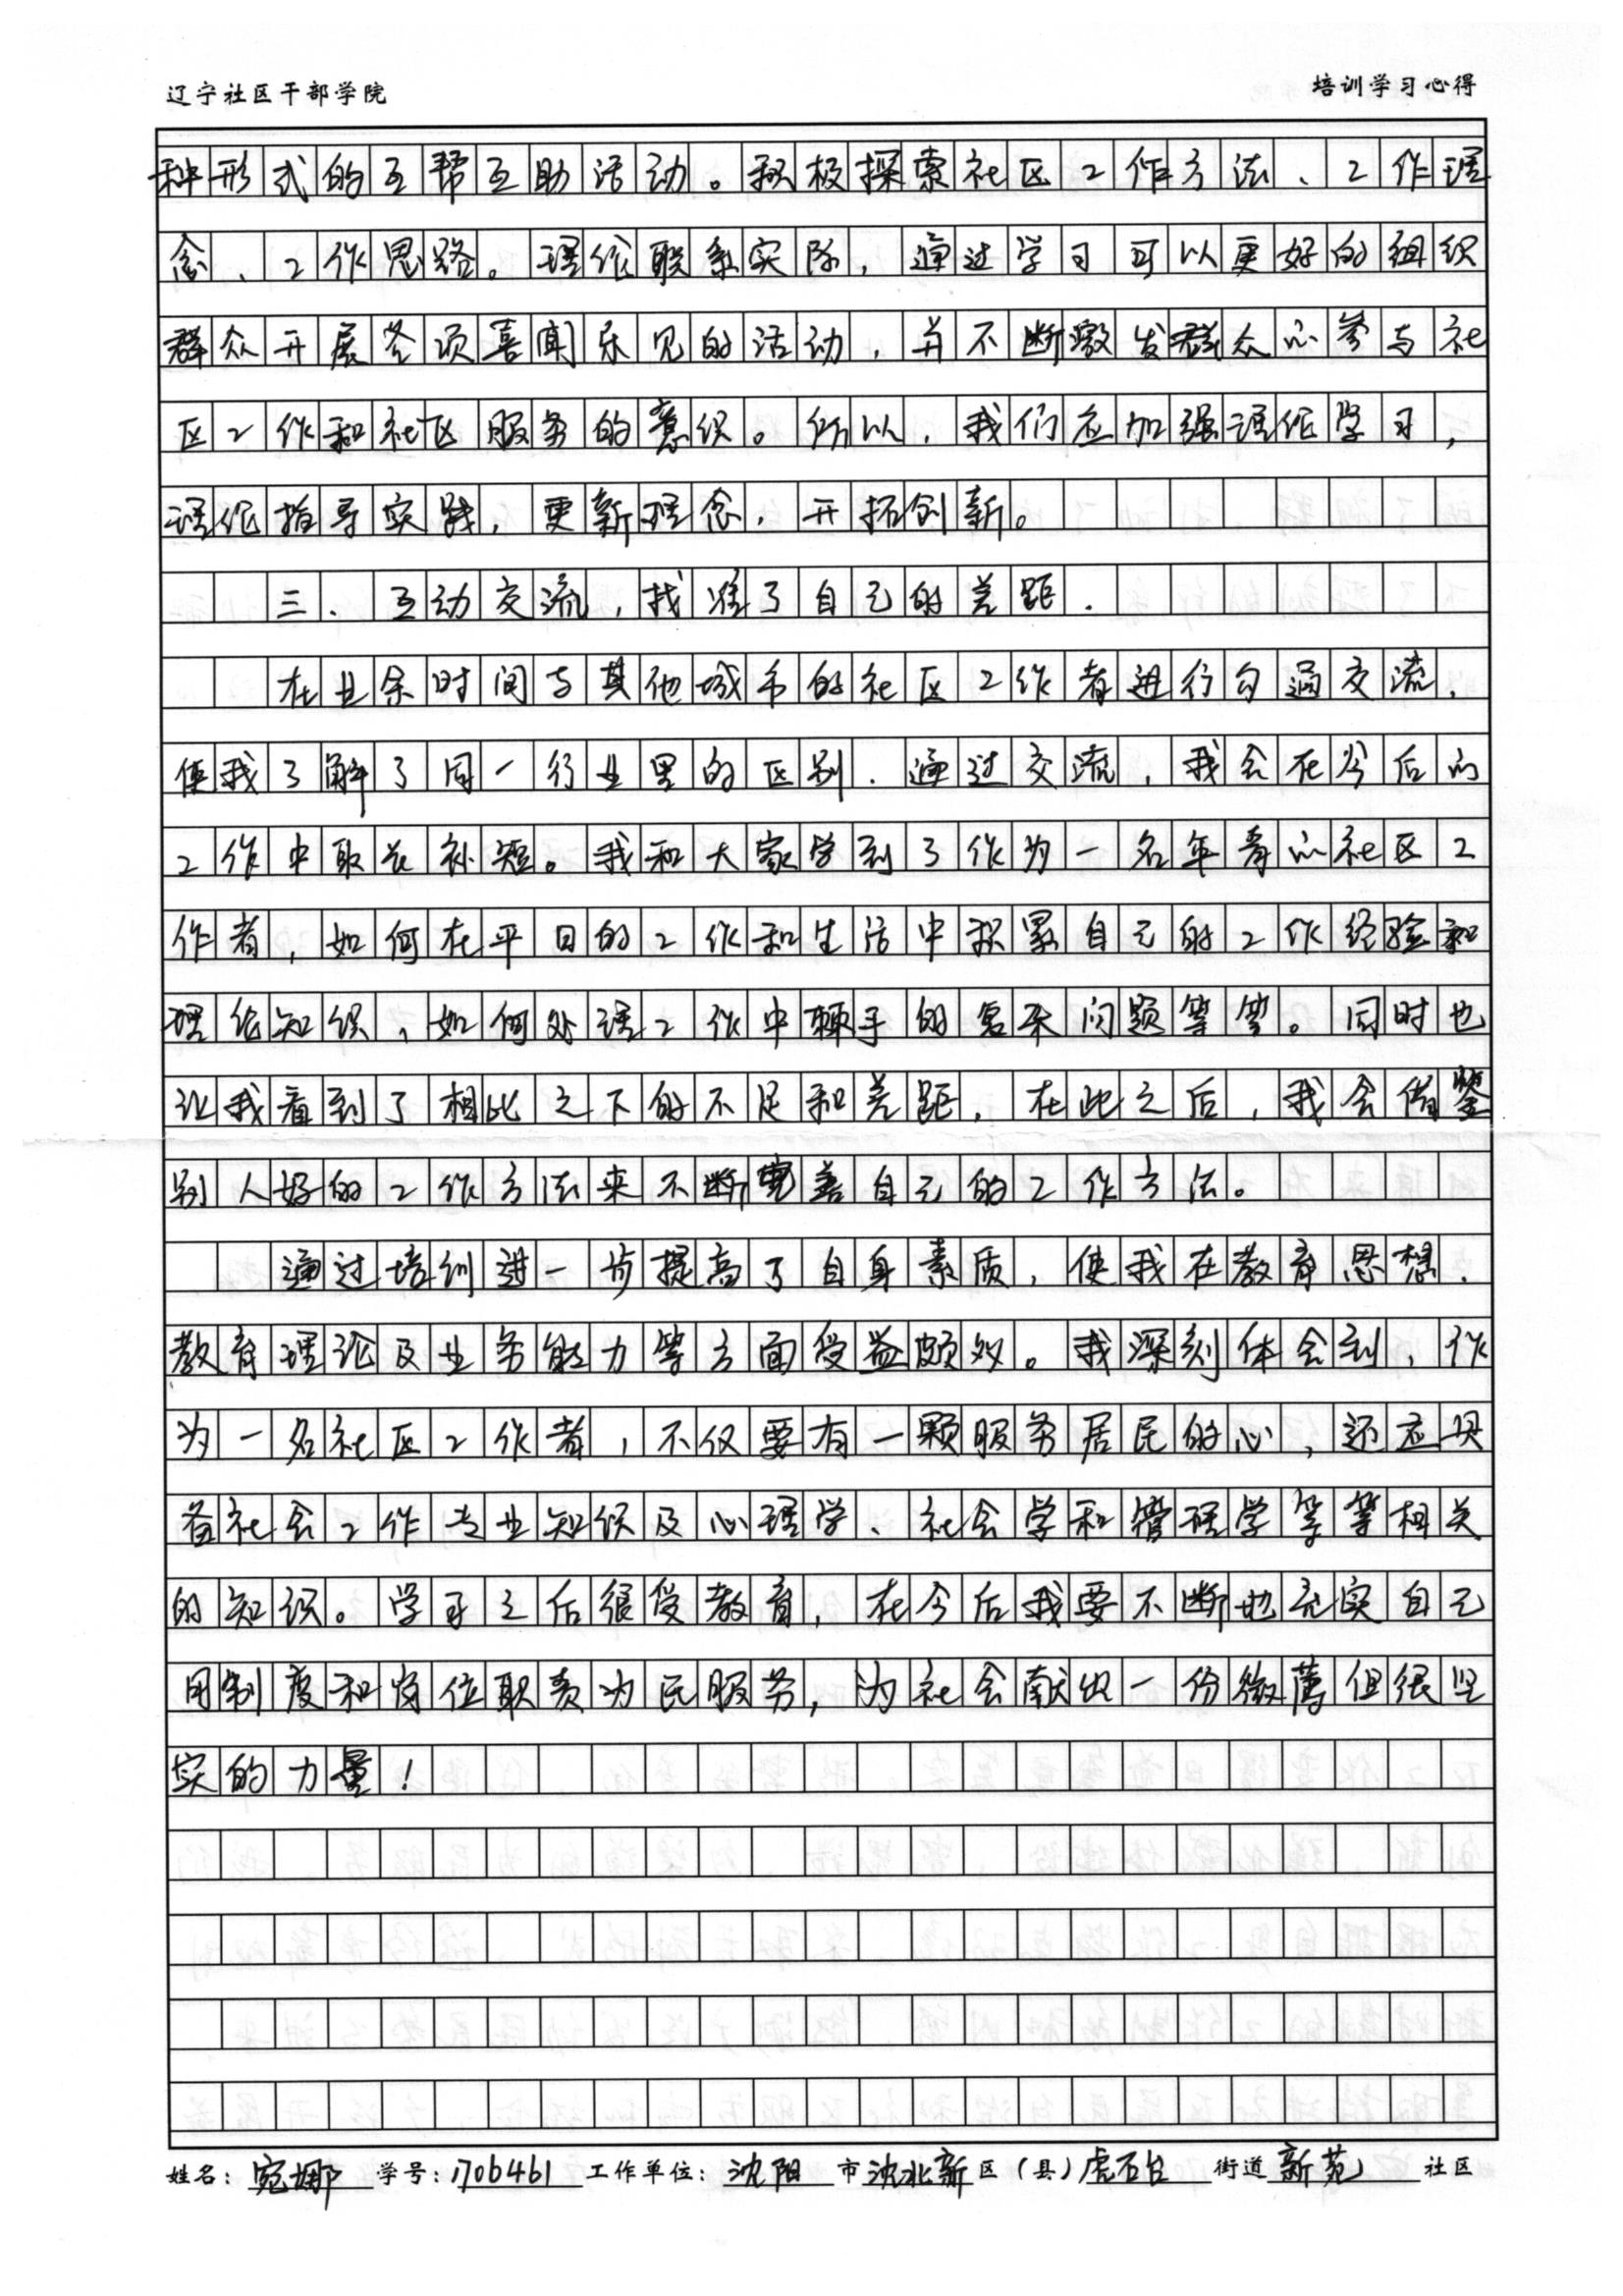 辽宁社区干部学院 培训学习心得
种形式的互帮互助活动。积极探索社区工作方法、工作理
念、工作思路。理论联系实际，通过学习可以更好的组织
群众开展各项喜闻乐见的活动，并不断激发群众心参与社
区工作和社区服务的意识。所以，我们应加强理论学习，
理论指导实践，更新理念，开拓创新。
三、互动交流，找准了自己的差距．
在业余时间与其他城市的社区工作者进行勾通交流，
使我了解了同一行业里的区别．通过交流，我会在今后的
工作中取长补短。我和大家学到了作为一名年青的社区工
作者，如何在平日的工作和生活中积累自己的工作经验和
理论知识，如何处理工作中棘手的复杂问题等等。同时也
让我看到了相比之下的不足和差距，在此之后，我会借鉴
别人好的工作方法来不断完善自己的工作方法。
通过培训进一步提高了自身素质，使我在教育思想、
教育理论及业务能力等方面受益颇多。我深刻体会到，作
为一名社区工作者，不仅要有一颗服务居民的心，还应具
备社会工作专业知识及心理学、社会学和管理学等等相关
的知识。学习之后很受教育，在今后我要不断地充实自己
用制度和岗位职责为民服务，为社会献出一份微薄但很坚
实的力量！
姓名：宛娜 学号：1706461 工作单位：沈阳市沈北新区（县）虎石台街道新苑社区